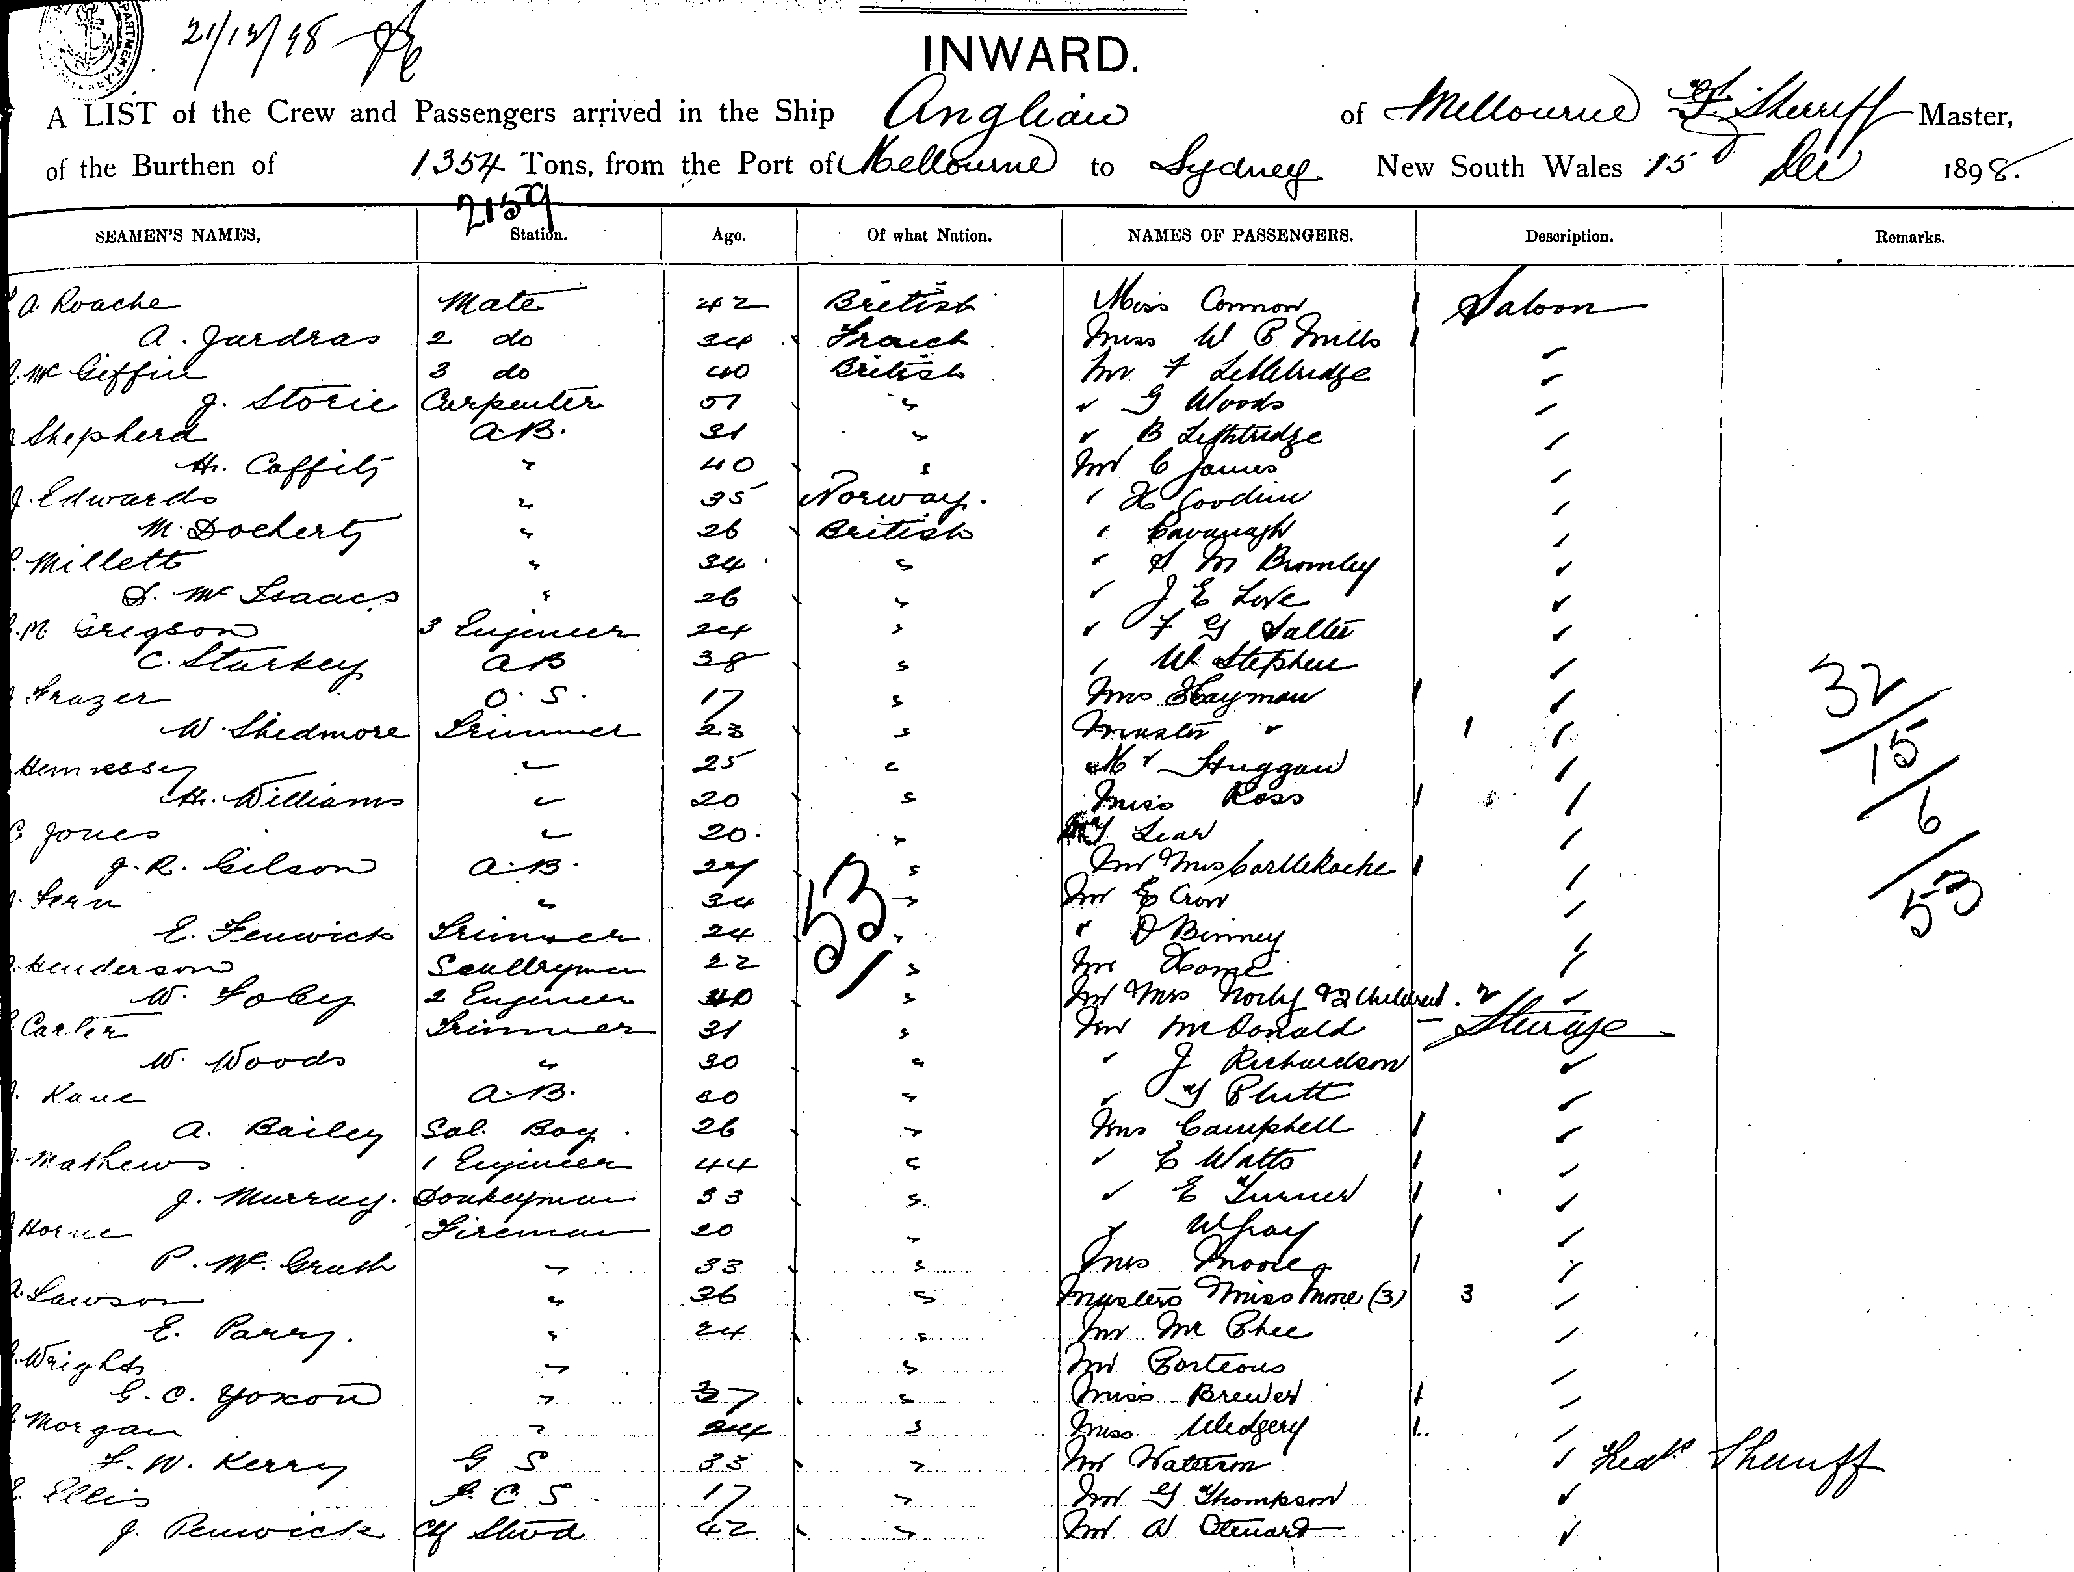 21/12/98
INWARD.
A LIST of the Crew and Passengers arrived in the Ship Anglian of Melbourne F Sherriff Master,
of the Burthen of 1354 Tons, from the Port of Melbourne to Sydney New South Wales 15 Dec 1898.
2159
SEAMEN'S NAMES, Station. Age. Of what Nation. NAMES OF PASSENGERS. Description. Remarks.
A. Roache Mate 42 British Miss Connor 1 Saloon
A. Jardras 2 do 34 French Miss W P Mills 1 ✓
Mc Giffin 3 do 40 British Mr F Lethbridge ✓
J. Storie Carpenter 57 " " G Woods ✓
Shepherd A.B. 31 " " B Lethbridge ✓
H. " 40 " Mr C James ✓
J. Edwards " 35 Norway. " H Goodin ✓
M. Docherty " 26 British " Cavanagh ✓
Millett " 34 " " S M Bromley ✓
D. Mc Isaacs " 26 " " J E Love ✓
M Gregson 3 Engineer 24 " " F G Salter ✓
C. Starkey AB 38 " " W Stephen ✓
Frazer O.S. 17 " Mrs Hayman 1 ✓
W. Skedmore Trimmer 23 " Master " 1 ✓
Hennessey " 25 " Mr Huggan ✓
H. Williams " 20 " Miss Ross 1 ✓
Jones " 20. " Lear ✓
J. R. Gilson A.B. 27 " Mr Mrs 1 ✓
Fern " 34 " Mr E Crow ✓
E. Fenwick Trimmer 24 " " D Binney ✓
Henderson Sculleryman 22 " Mr Horne ✓
W. Foley 2 Engineer 40 " Mr Mrs & 2 Children. 2 ✓
Carter Trimmer 31 " Mr McDonald Steerage
W. Woods " 30 " " J Richardson ✓
Kane A.B. 20 " " ✓
A. Bailey Sal. Boy 26 " Mrs Campbell 1 ✓
Mathews 1 Engineer 44 " " E Watts 1 ✓
J. Murray. Donkeyman 33 " " E Turner 1 ✓
Horne Fireman 20 " " W Gray 1 ✓
P. Mc. Grath " 33 " Mrs Moore 1 ✓
Lawson " 36 " Masters Miss More (3) 3 ✓
E. Parry. " 24 " Mr Mc Phee ✓
Wright " " Mr Porteous ✓
G. C. Yoxon " 37 " Miss Brewer 1 ✓
Morgan " 24 " Miss Wedgery 1 ✓
F. W. Kerry G S 33 " Mr Waterson ✓ Fredk Sherriff
Ellis F. C. S 17 " Mr G Thompson ✓
J. Penwick Chf Stwd 42 " Mr A Stewart ✓
32/15/6/53
53/